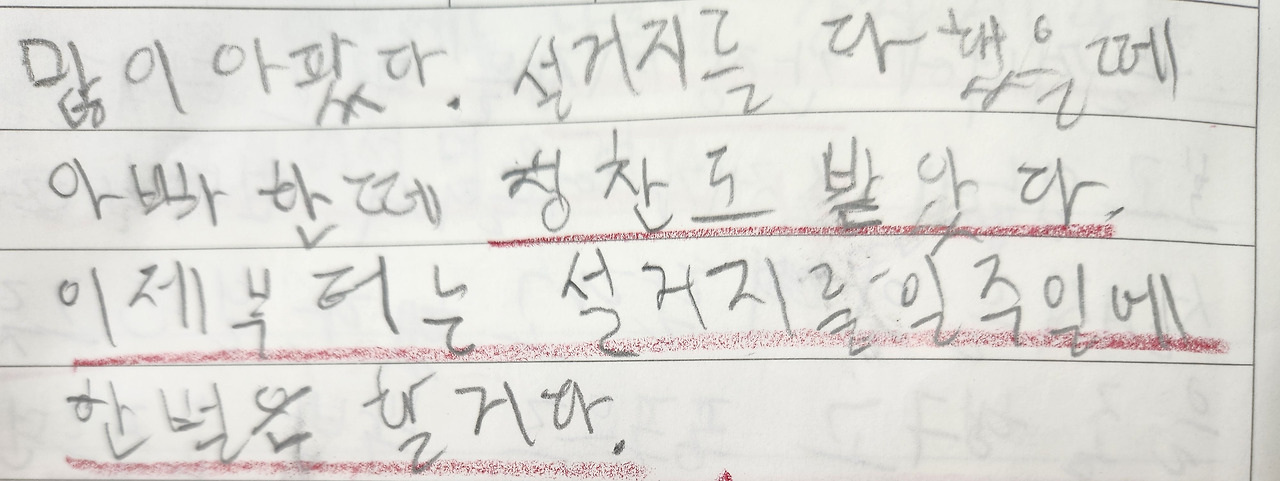 많이 아팠다. 설거지를 다 했을 떼
아빠 한떼 칭찬도 받았다.
이제부터는 설거지를 일주일에
한번은 할거야.